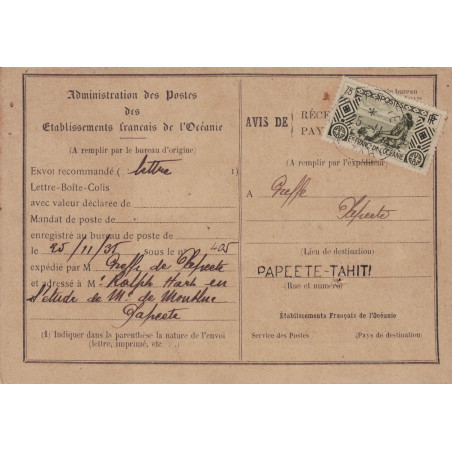 Administration des Postes
des
Etablissements français de l'Océanie
(A remplir par le bureau d'origine)
Envoi recommandé ( lettre 1)
Lettre-Boîte-Colis
avec valeur déclarée de
Mandat de poste de
enregistré au bureau de poste de
le 25/11/35 sous le n° 405
expédié par M Greffe de Papeete
et adressé à M. Ralph Hart en
l'étude de Me de Montluc
Papeete
(1) Indiquer dans la parenthèse la nature de l'envoi
(lettre, imprimé, etc.)
bureau
AVIS DE
RÉCE
PAY
75
POSTES
ETS FRANC. DE L'OCÉANIE
(A remplir par l'expéditeur)
A Greffe
Papeete
(Lieu de destination)
PAPEETE-TAHITI
(Rue et numéro)
Établissements Français de l'Océanie
Service des Postes (Pays de destination)